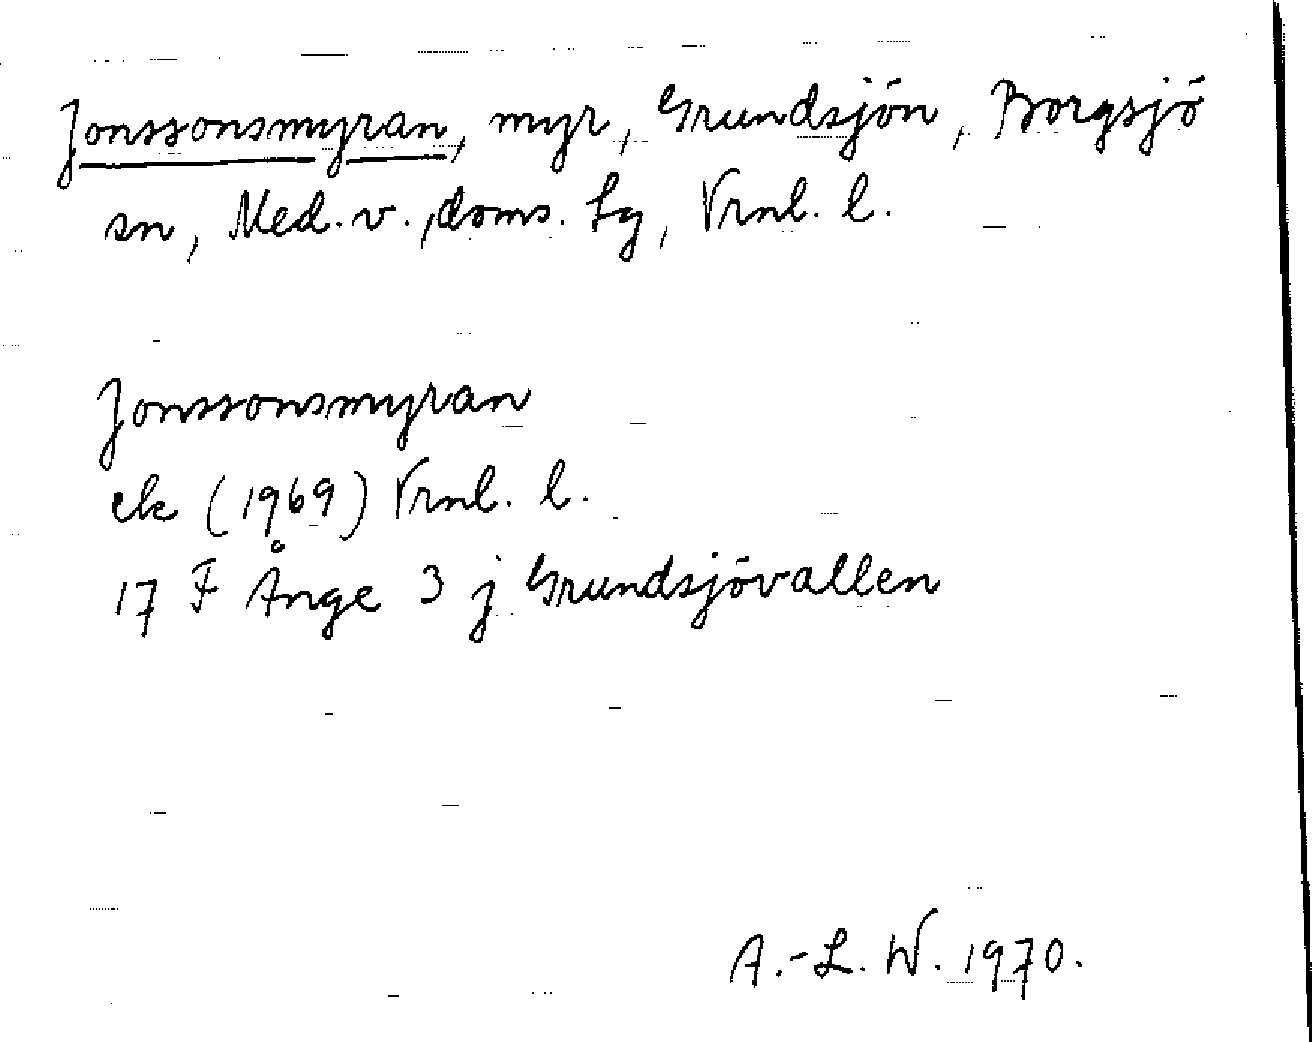 Jonssonsmyran, myr, Grundsjön, Borgsjö
sn, Med. v., doms. Lg, Vrnl. l.
Jonssonsmyran
ek (1969) Vrnl. l.
17 F Ånge 3 j Grundsjövallen
A.-L. W. 1970.